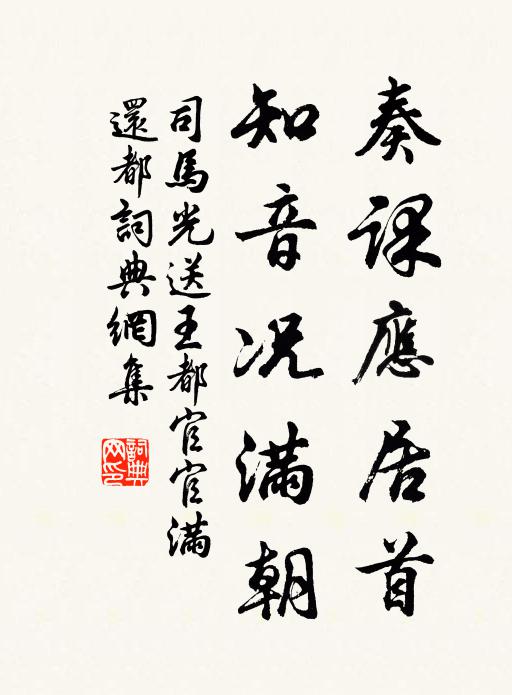 奏課應居首
知音况滿朝
司馬光送王都官官滿
還都詞典網集
詞典网印